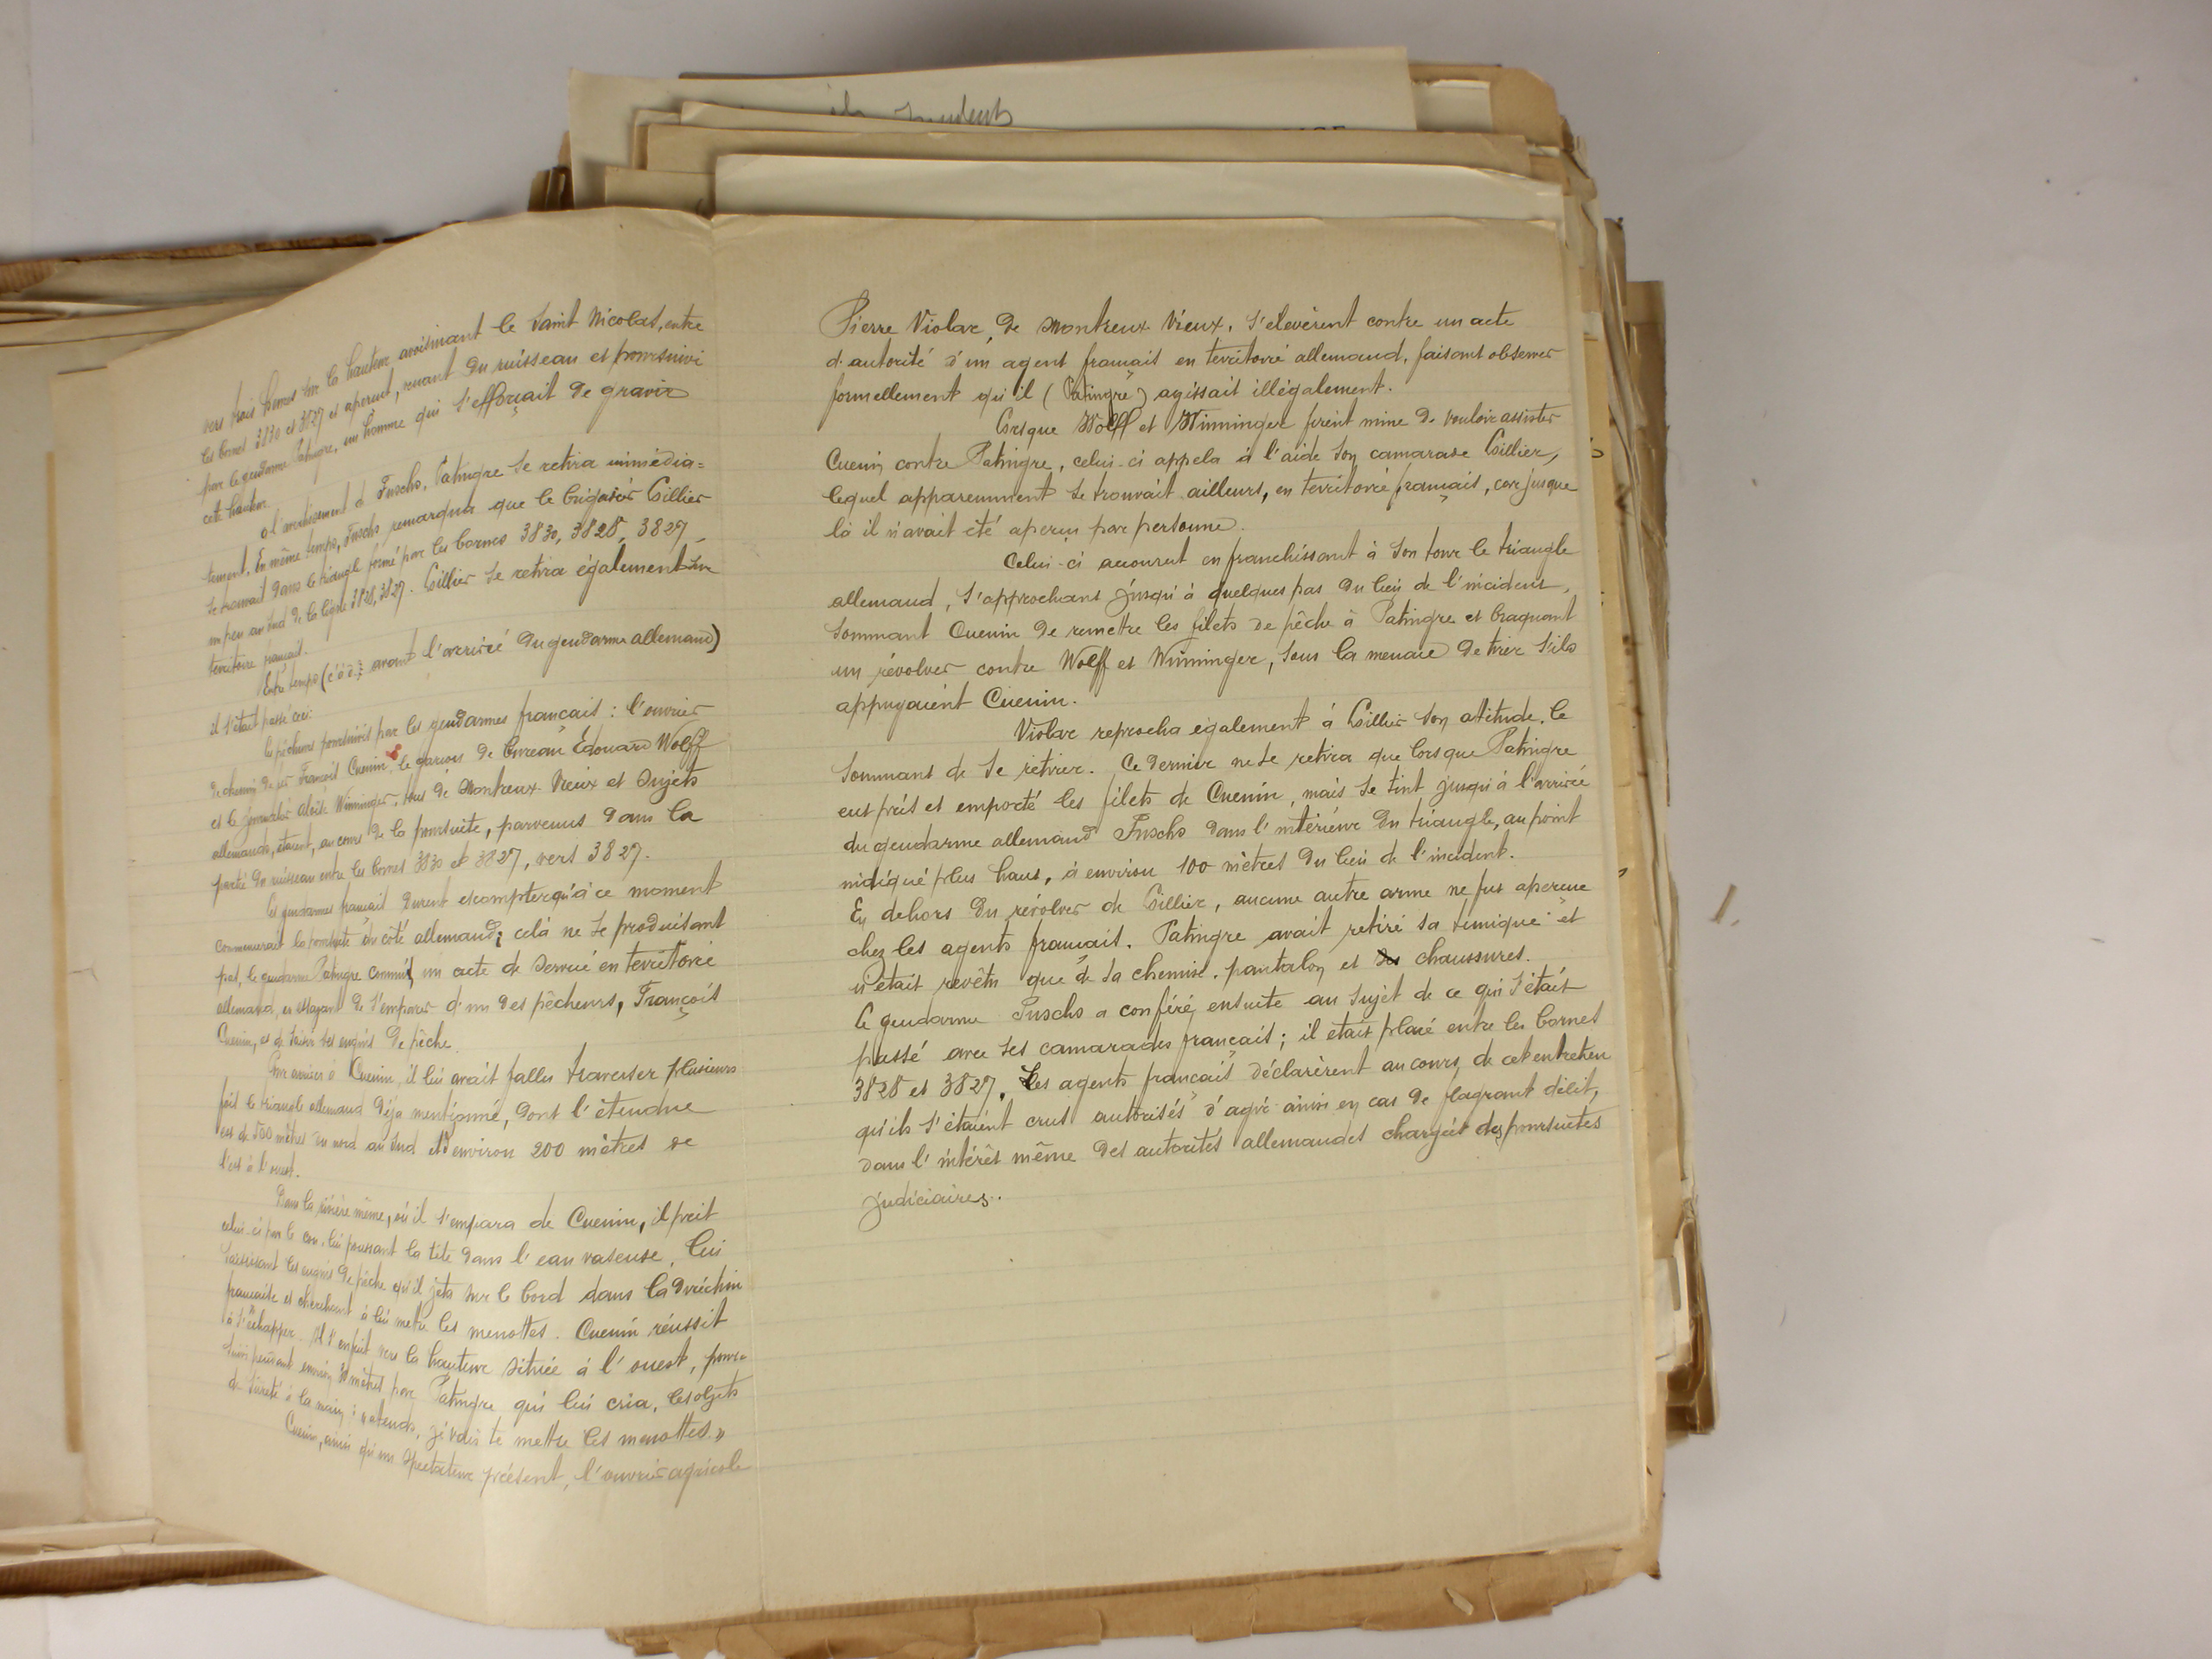 vers trois heures sur la hauteur avoisinant le Saint Nicolas, entre
les bornes 3830 et 3827 et aperçut, venant du ruisseau et poursuivi
par le gendarme Patingre, un homme qui s'efforçait de gravir
cette hauteur.
A l'avertissement de Fuschs, Patingre se retira immédia=
tement. En même temps, Fuschs remarqua que le brigadier Cillier
se trouvait dans le triangle formé par les bornes 3830, 3828, 3827,
un peu au sud de la ligne 3828, 3827. Cillier se retira également sur
territoire français.
Entre temps (c'à d.: avant l'arrivée du gendarme allemand)
il s'était passé ceci:
les pêcheurs poursuivis par les gendarmes français: l'ouvrier
de chemin de fer François Cuenin, le garçon de bureau Edouard Wolff
et le journalier Aloïse Winninger, tous de Montreux-Vieux et sujets
allemands, étaient, au cours de la poursuite, parvenus dans la
partie du ruisseau entre les bornes 3830 et 3827, vers 3827.
Les gendarmes français durent escompter qu'à ce moment
commencerait la poursuite du côté allemand; celà ne se produisant
pas, le gendarme Patingre commit un acte de service en territoire
allemand, en essayant de s'emparer d'un des pêcheurs, François
Cuenin, et de saisir ses engins de pêche.
Pour arriver à Cuenin, il lui avait fallu traverser plusieurs
fois le triangle allemand déja mentionné, dont l'étendue
est de 500 mètres du nord au sud et d'environ 200 mètres de
l'est à l'ouest.
Dans la rivière même, où il s'empara de Cuenin, il prit
celui-ci par le cou, lui poussant la tête dans l'eau vaseuse, lui
saisissant les engins de pêche qu'il jeta sur le bord dans la direction
française et cherchant à lui mettre les menottes. Cuenin réussit
à s'échapper. Il s'enfuit vers la hauteur située à l'ouest, pour=
suivi pendant environ 30 mètres par Patingre qui lui cria, les objets
de sûreté à la main: "attends, je vais te mettre les menottes."
Cuenin, ainsi qu'un spectateur présent, l'ouvrier agricole
Pierre Violar, de Montreux Vieux, s'elevèrent contre un acte
d'autorité d'un agent français en territoire allemand, faisant observer
formellement qu'il (Patingre) agissait illégalement.
Lorsque Wolff et Winninger firent mine de vouloir assister
Cuenin contre Patingre, celui-ci appela à l'aide son camarade Cillier,
lequel apparemment se trouvait ailleurs, en territoire français, car jusque
là il n'avait été aperçu par personne.
Celui-ci accourut en franchissant à son tour le triangle
allemand, s'approchant jusqu'à quelques pas du lieu de l'incident,
sommant Cuenin de remettre les filets de pêche à Patingre et braquant
un révolver contre Wolff et Winninger, sous la menace de tirer s'ils
appuyaient Cuenin.
Violar reprocha egalement à Cillier son attitude, le
sommant de se retirer. Ce dernier ne se retira que lorsque Patingre
eut pris et emporté les filets de Cuenin, mais se tint jusqu'à l'arrivée
du gendarme allemand Fuschs dans l'intérieur du triangle, au point
indiqué plus haut, à environ 100 mètres du lieu de l'incident.
En dehors du révolver de Cillier, aucune autre arme ne fut aperçue
chez les agents français. Patingre avait retiré sa tunique et
n'était revêtu que de sa chemise, pantalon et chaussures.
Le gendarme Fuschs a conféré ensuite au sujet de ce qui s'était
passé avec ses camarades français; il était placé entre les bornes
3828 et 3827. Les agents français déclarèrent au cours de cet entretien
qu'ils s'étaient crus autorisés d'agir ainsi en cas de flagrant délit,
dans l'intérêt même des autorités allemandes chargées des poursuites
judiciaires.